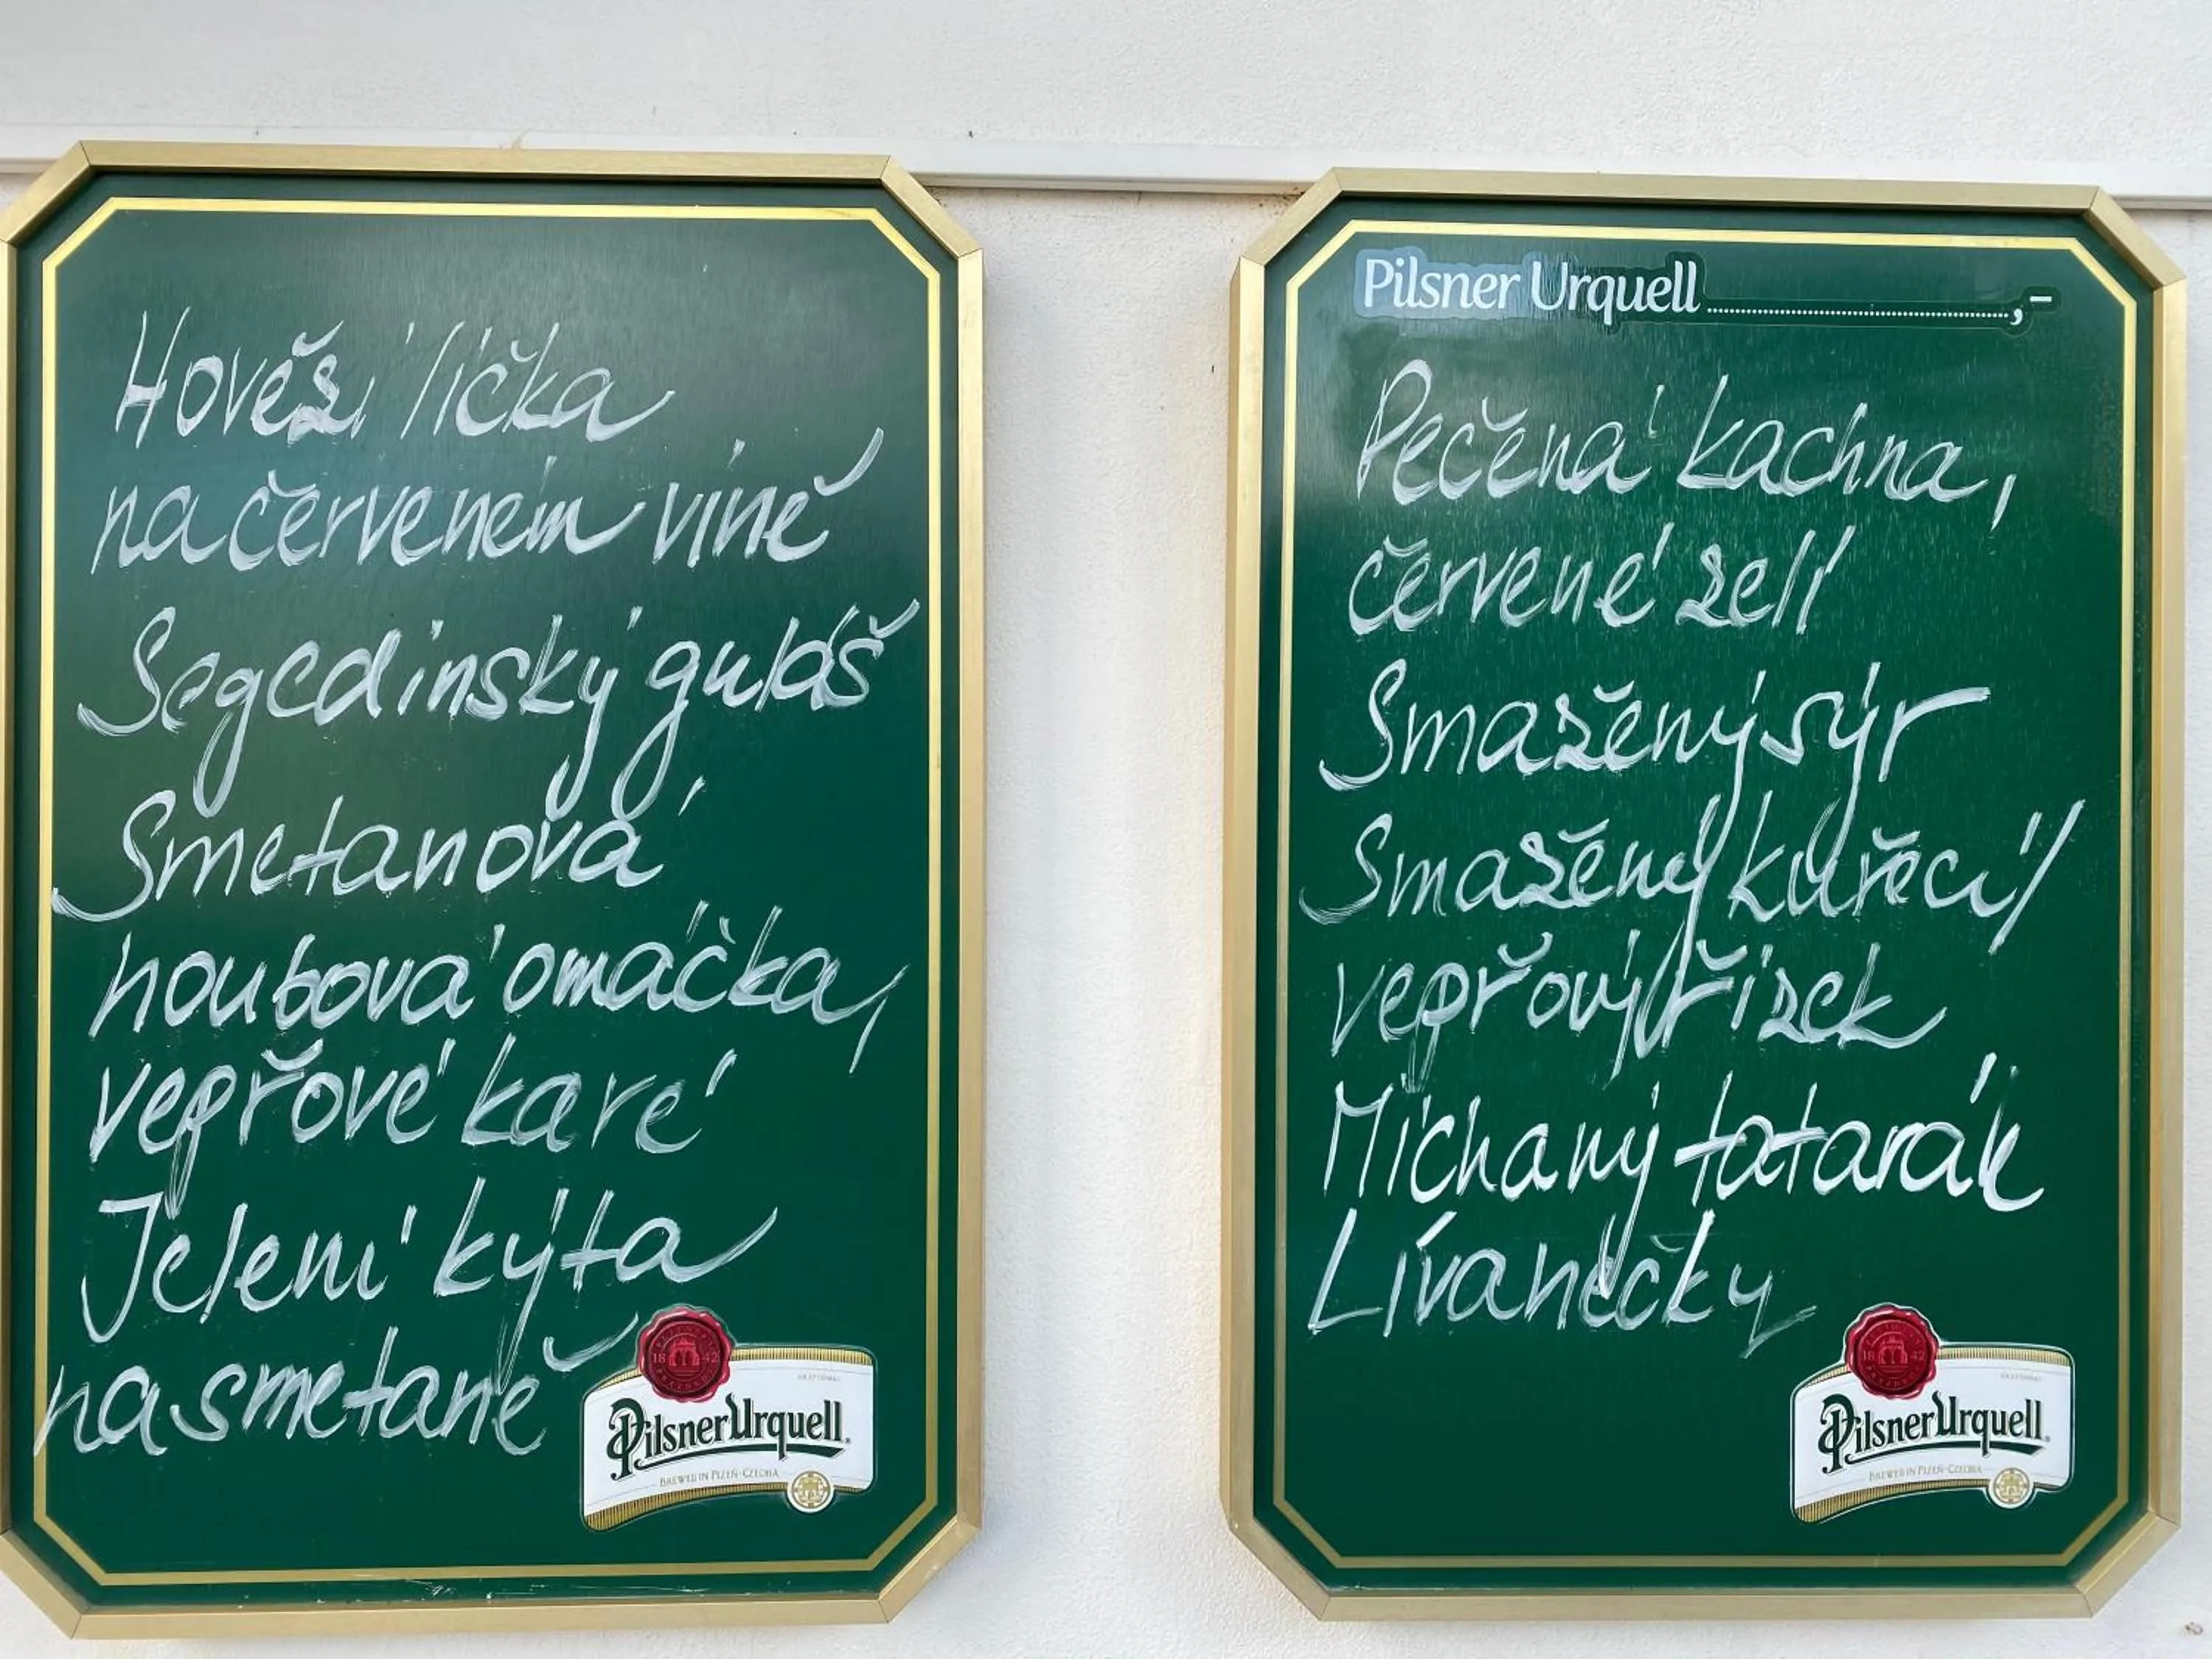 Hovězí líčka
na červeném víně
Segedínský guláš
Smetanová
houbová omáčka,
vepřové karé
Jelení kýta
na smetaně
18 42
Pilsner Urquell
BREWED IN PLZEŇ-CZECHIA
Pilsner Urquell ..........,-
Pečená kachna,
červené zelí
Smažený sýr
Smažený kuřecí/
vepřový řízek
Míchaný tatarák
Lívanečky
18 42
Pilsner Urquell
BREWED IN PLZEŇ-CZECHIA